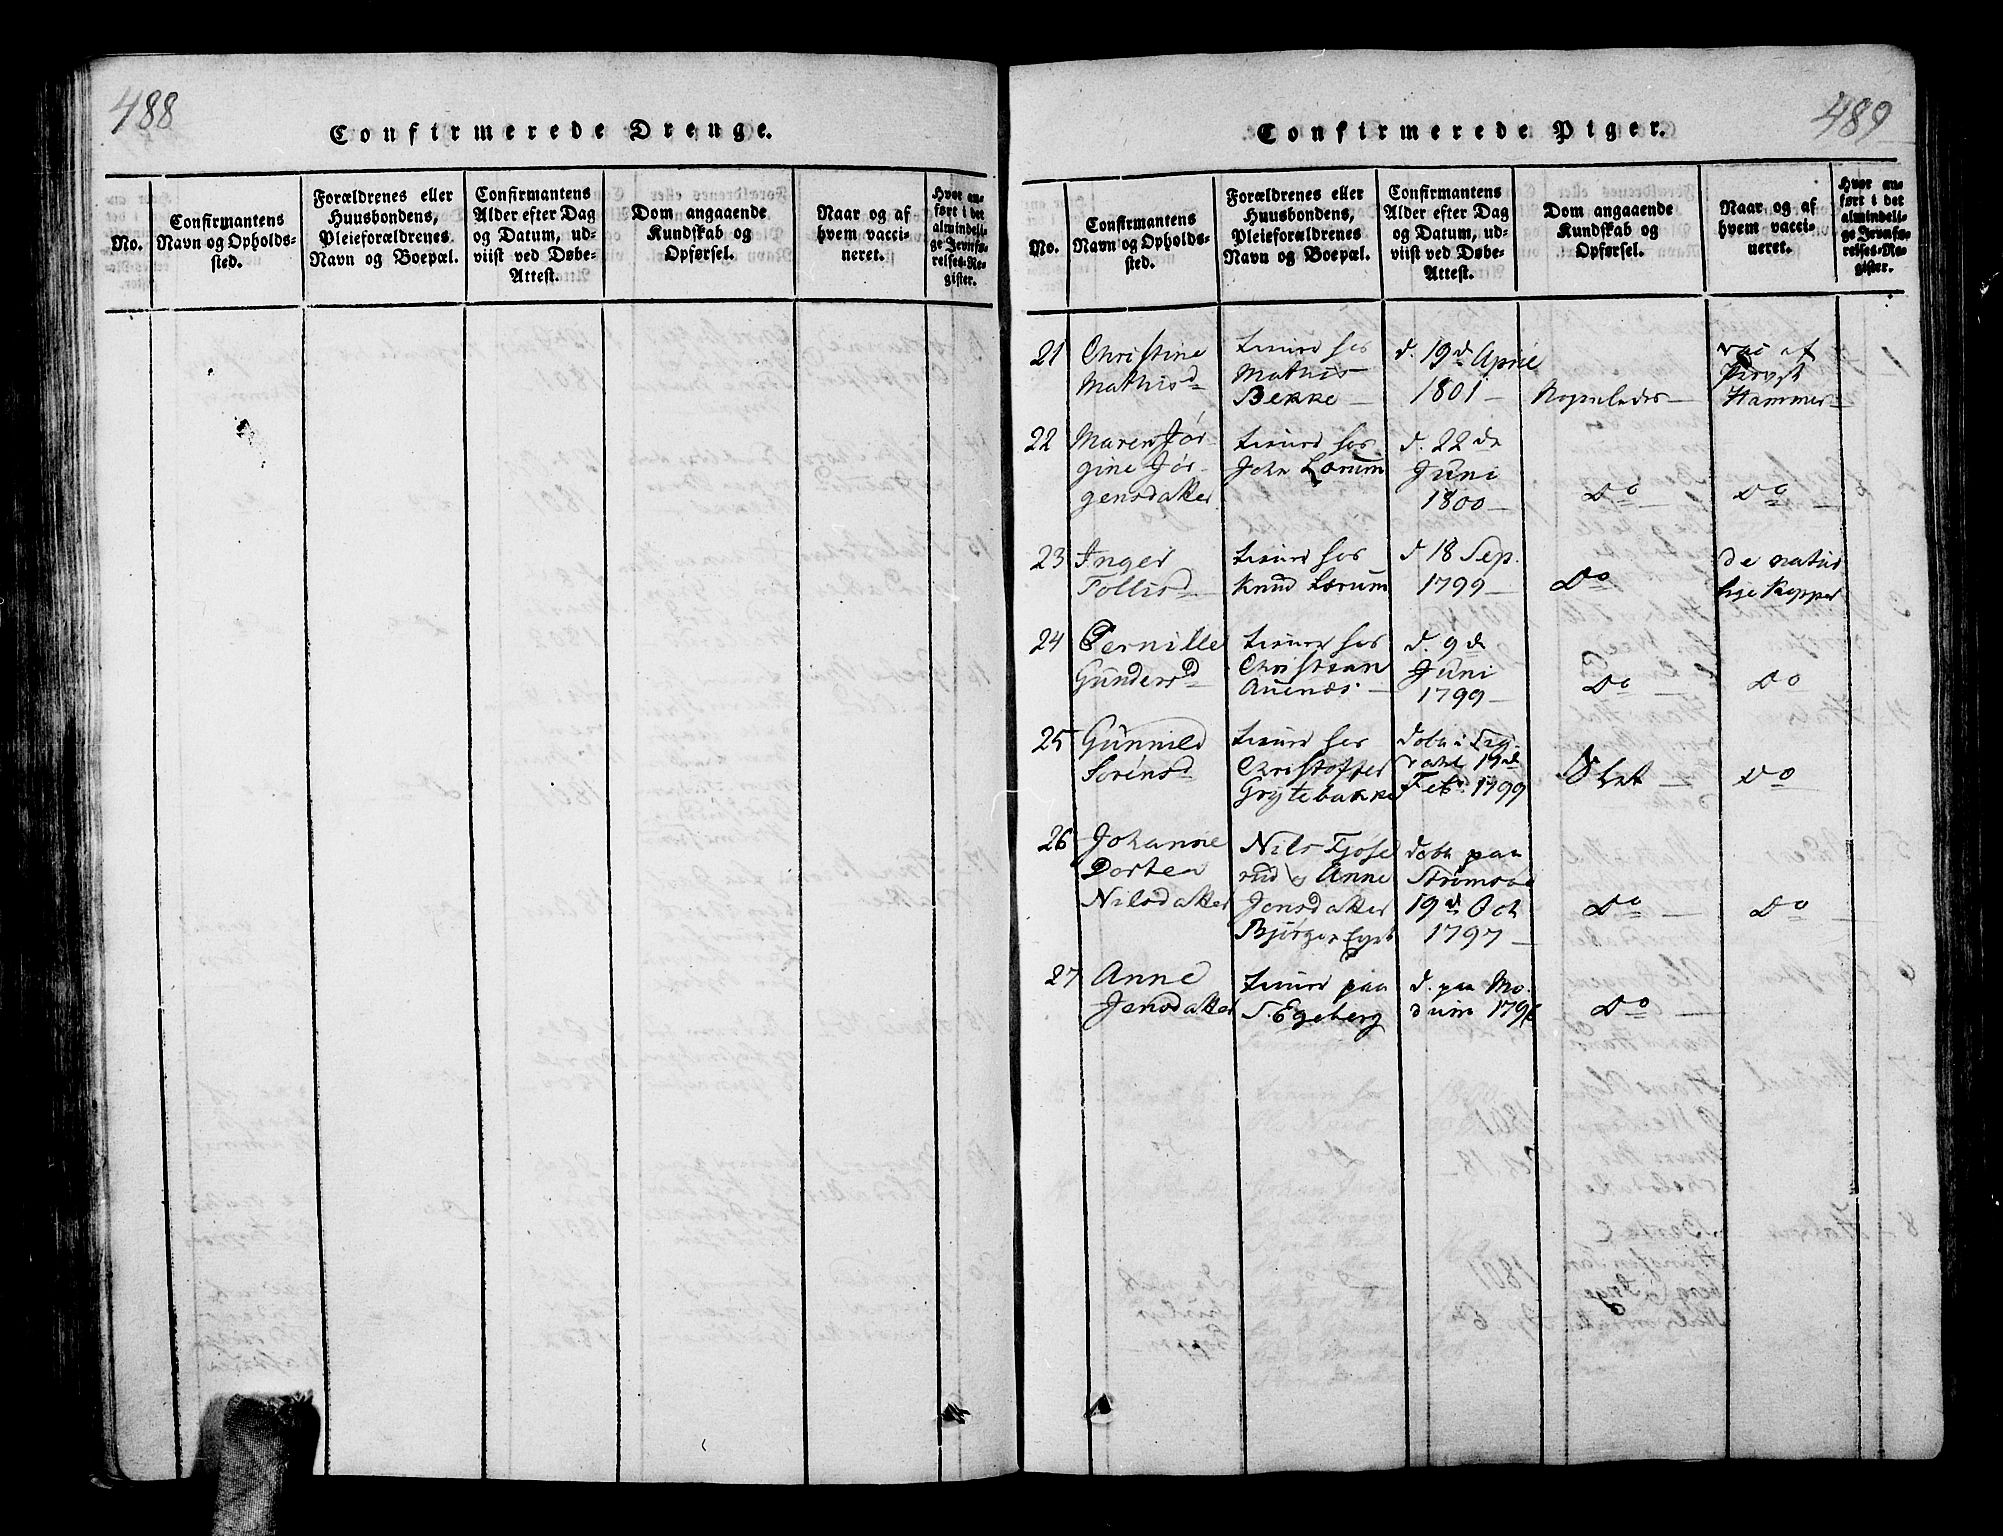 488
Confirmerede Drenge.
No.
Confirmantens
Navn og Opholds-
sted.
Forældrenes eller
Huusbondens,
Pleieforældrenes
Navn og Boepæl.
Confirmantens
Alder efter Dag
og Datum, ud-
viist ved Døbe-
Attest.
Dom angaaende
Kundskab og
Opførsel.
Naar og af
hvem vacci-
neret.
Hvor an-
ført i det
almindeli-
ge Jevnfø-
relses-Re-
gister.
489
Confirmerede Piger.
No.
Confirmantens
Navn og Opholds-
sted.
Forældrenes eller
Huusbondens,
Pleieforældrenes
Navn og Boepæl.
Confirmantens
Alder efter Dag
og Datum, ud-
viist ved Døbe-
Attest.
Dom angaaende
Kundskab og
Opførsel.
Naar og af
hvem vacci-
neret.
Hvor an-
ført i det
almindeli-
ge Jevnfø-
relses-Re-
gister.
21
Christine
Mathisd
hos
Mathis
Bekke
d. 19d April
1801
vac af
Provst
Hammer
22
Maren Jør
gine Jør-
gensdatter
hos
John Lorum
d. 22de
Juni
1800
Do
Do
23
Inger
Tollisd
hos
Knud Lorum
d 18 Sep.
1799
Do
de natur
lige Kopper
24
Pernille
Gundersd
hos
Christian
Auenæs
d. 9de
Juni
1799
Do
Do
25
Gunnild
Sørensd
hos
Christoffer
Grytebakke
døbt i
19de
Feb. 1799
Slet
Do
26
Johanne
Dortea
Nilsdatter
Nils Fjøse
rud og Anne
Jensdatter
døbt paa
Strømsøe
19d Oct
1797
Do
Do
27
Anne
Jensdatter
paa
S Egeberg
d. paa Mo
dum
Do